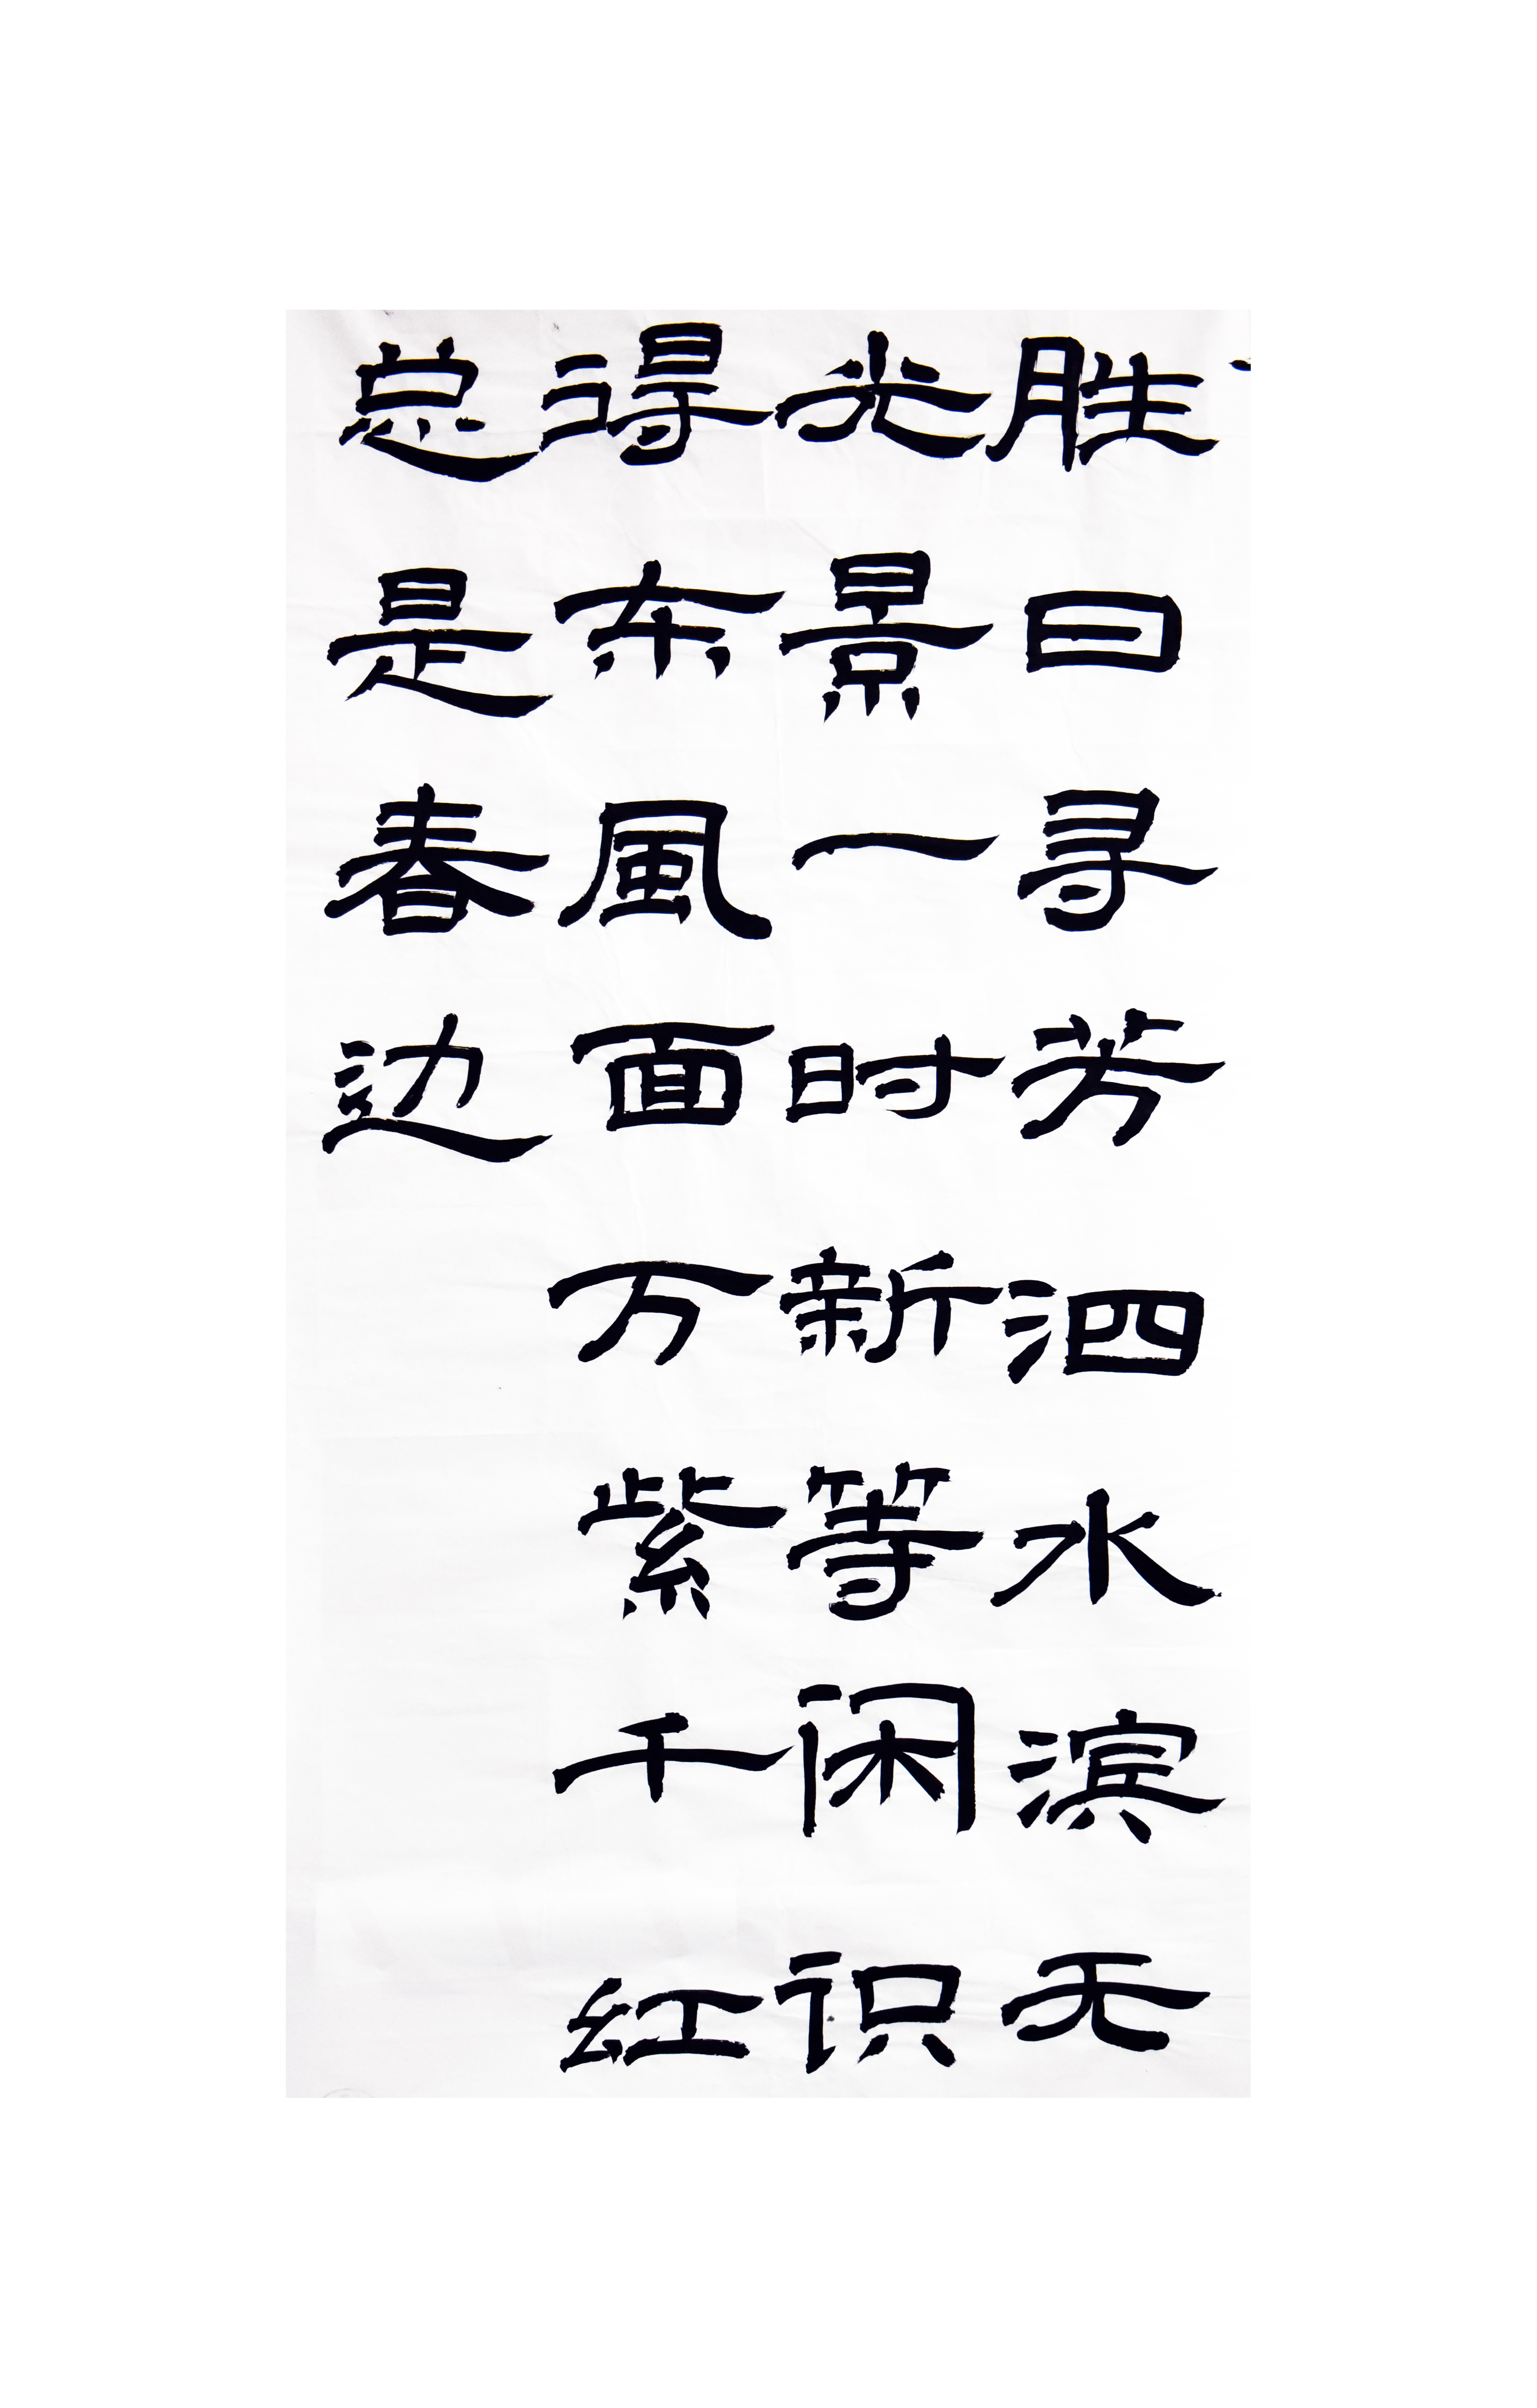 胜日寻芳泗水滨无
光景一时新等闲识
得东風面万紫千红
总是春边